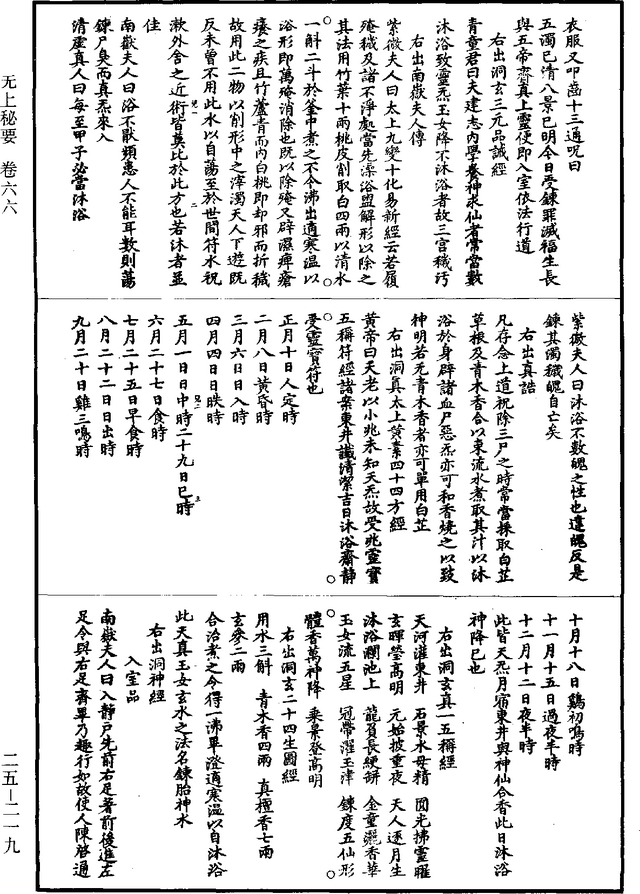 无上秘要 卷六六
衣服又叩齒十三通呪曰
五濁已清八景已明今日受鍊罪滅福生長
與五帝齊真上靈便即入室依法行道
右出洞玄三元品誡經
青童君曰夫建志內學養神求仙者常當數
沐浴致靈炁玉女降不沐浴者故三宮穢污
右出南嶽夫人傳
紫微夫人曰太上九變十化易新經云若履
殗穢及諸不淨處當先澡浴盥解形以除之
其法用竹葉十兩桃皮削取白四兩以清水
一斛二斗於釜中煮之不令沸出適寒溫以
浴形即萬殗消除也既以除殗又辟濕痺瘡
癢之疾且竹虛素而內白桃即却邪而折穢
故用此二物以削形中之滓濁天人下遊既
反未曾不用此水以自蕩至於世間符水祝
漱外舍之近術皆莫比於此方也若沐者益
佳
南嶽夫人曰浴不猒頻患人不能耳數則蕩
鍊尸臭而真炁來入
清虛真人曰每至甲子必當沐浴
紫微夫人曰沐浴不數魄之性也違魄反是
鍊其濁穢魄自亡矣
右出真誥
凡存念上道祝除三尸之時常當採取白芷
草根及青木香合以東流水煮取其汁以沐
浴於身辟諸血尸惡炁亦可和香燒之以致
神明若無青木香者亦可單用白芷
右出洞真太上黃素四十四方經
黃帝曰天老以小兆未知天炁故受兆靈寶
五稱符經諸案東井讖清潔吉日沐浴齋靜
受靈寶符也
正月十日人定時
二月八日黃昏時
三月六日日入時
四月四日日昳時
五月一日日中時二十九日巳時
六月二十七日食時
七月二十五日早食時
八月二十二日日出時
九月二十日雞三鳴時
十月十八日雞初鳴時
十一月十五日過夜半時
十二月十二日夜半時
此皆天炁月宿東井與神仙合香此日沐浴
神降已也
右出洞玄真一五稱經
天河灌東井 石景水母精 圓光拂靈曜
玄暉瑩高明 元始披重夜 天人逐月生
沐浴瀾池上 龍負長緶缾 金童灑香華
玉女流五星 冠帶濯玉津 鍊度五仙形
體香萬神降 乘景登高明
右出洞玄二十四生圖經
用水三斛 青木香四兩 真檀香七兩
玄參二兩
合治煮之令得一沸畢澄適寒溫以自沐浴
此天真玉女玄水之法名鍊胎神水
右出洞神經
入室品
南嶽夫人曰入靜戶先前右足著前後進左
足令與右足齊畢乃趣行如故使人陳啓通
二五—二一九